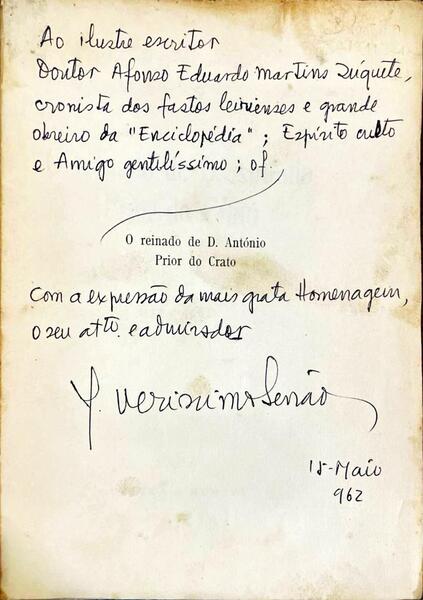 Ao ilustre escritor
Doutor Afonso Eduardo Martins Zúquete,
cronista dos fastos leirienses e grande
obreiro da "Enciclopédia"; Espírito culto
e Amigo gentilíssimo; of.
O reinado de D. António
Prior do Crato
Com a expressão da mais grata Homenagem,
o seu attº. e admirador
J. Veríssimo Serrão
15-Maio
962